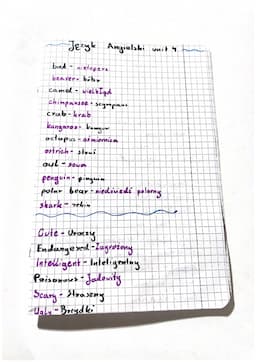 Język Angielski unit 4
bat - nietoperz
beaver - bóbr
camel - wielbłąd
chimpanzee - szympans
crab - krab
kangaroo - kangur
octopus - ośmiornica
ostrich - struś
owl - sowa
penguin - pingwin
polar bear - niedźwiedź polarny
shark - rekin
Cute - Uroczy
Endangered - Zagrożony
Intelligent - Inteligentny
Poisonous - Jadowity
Scary - Straszny
Ugly - Brzydki